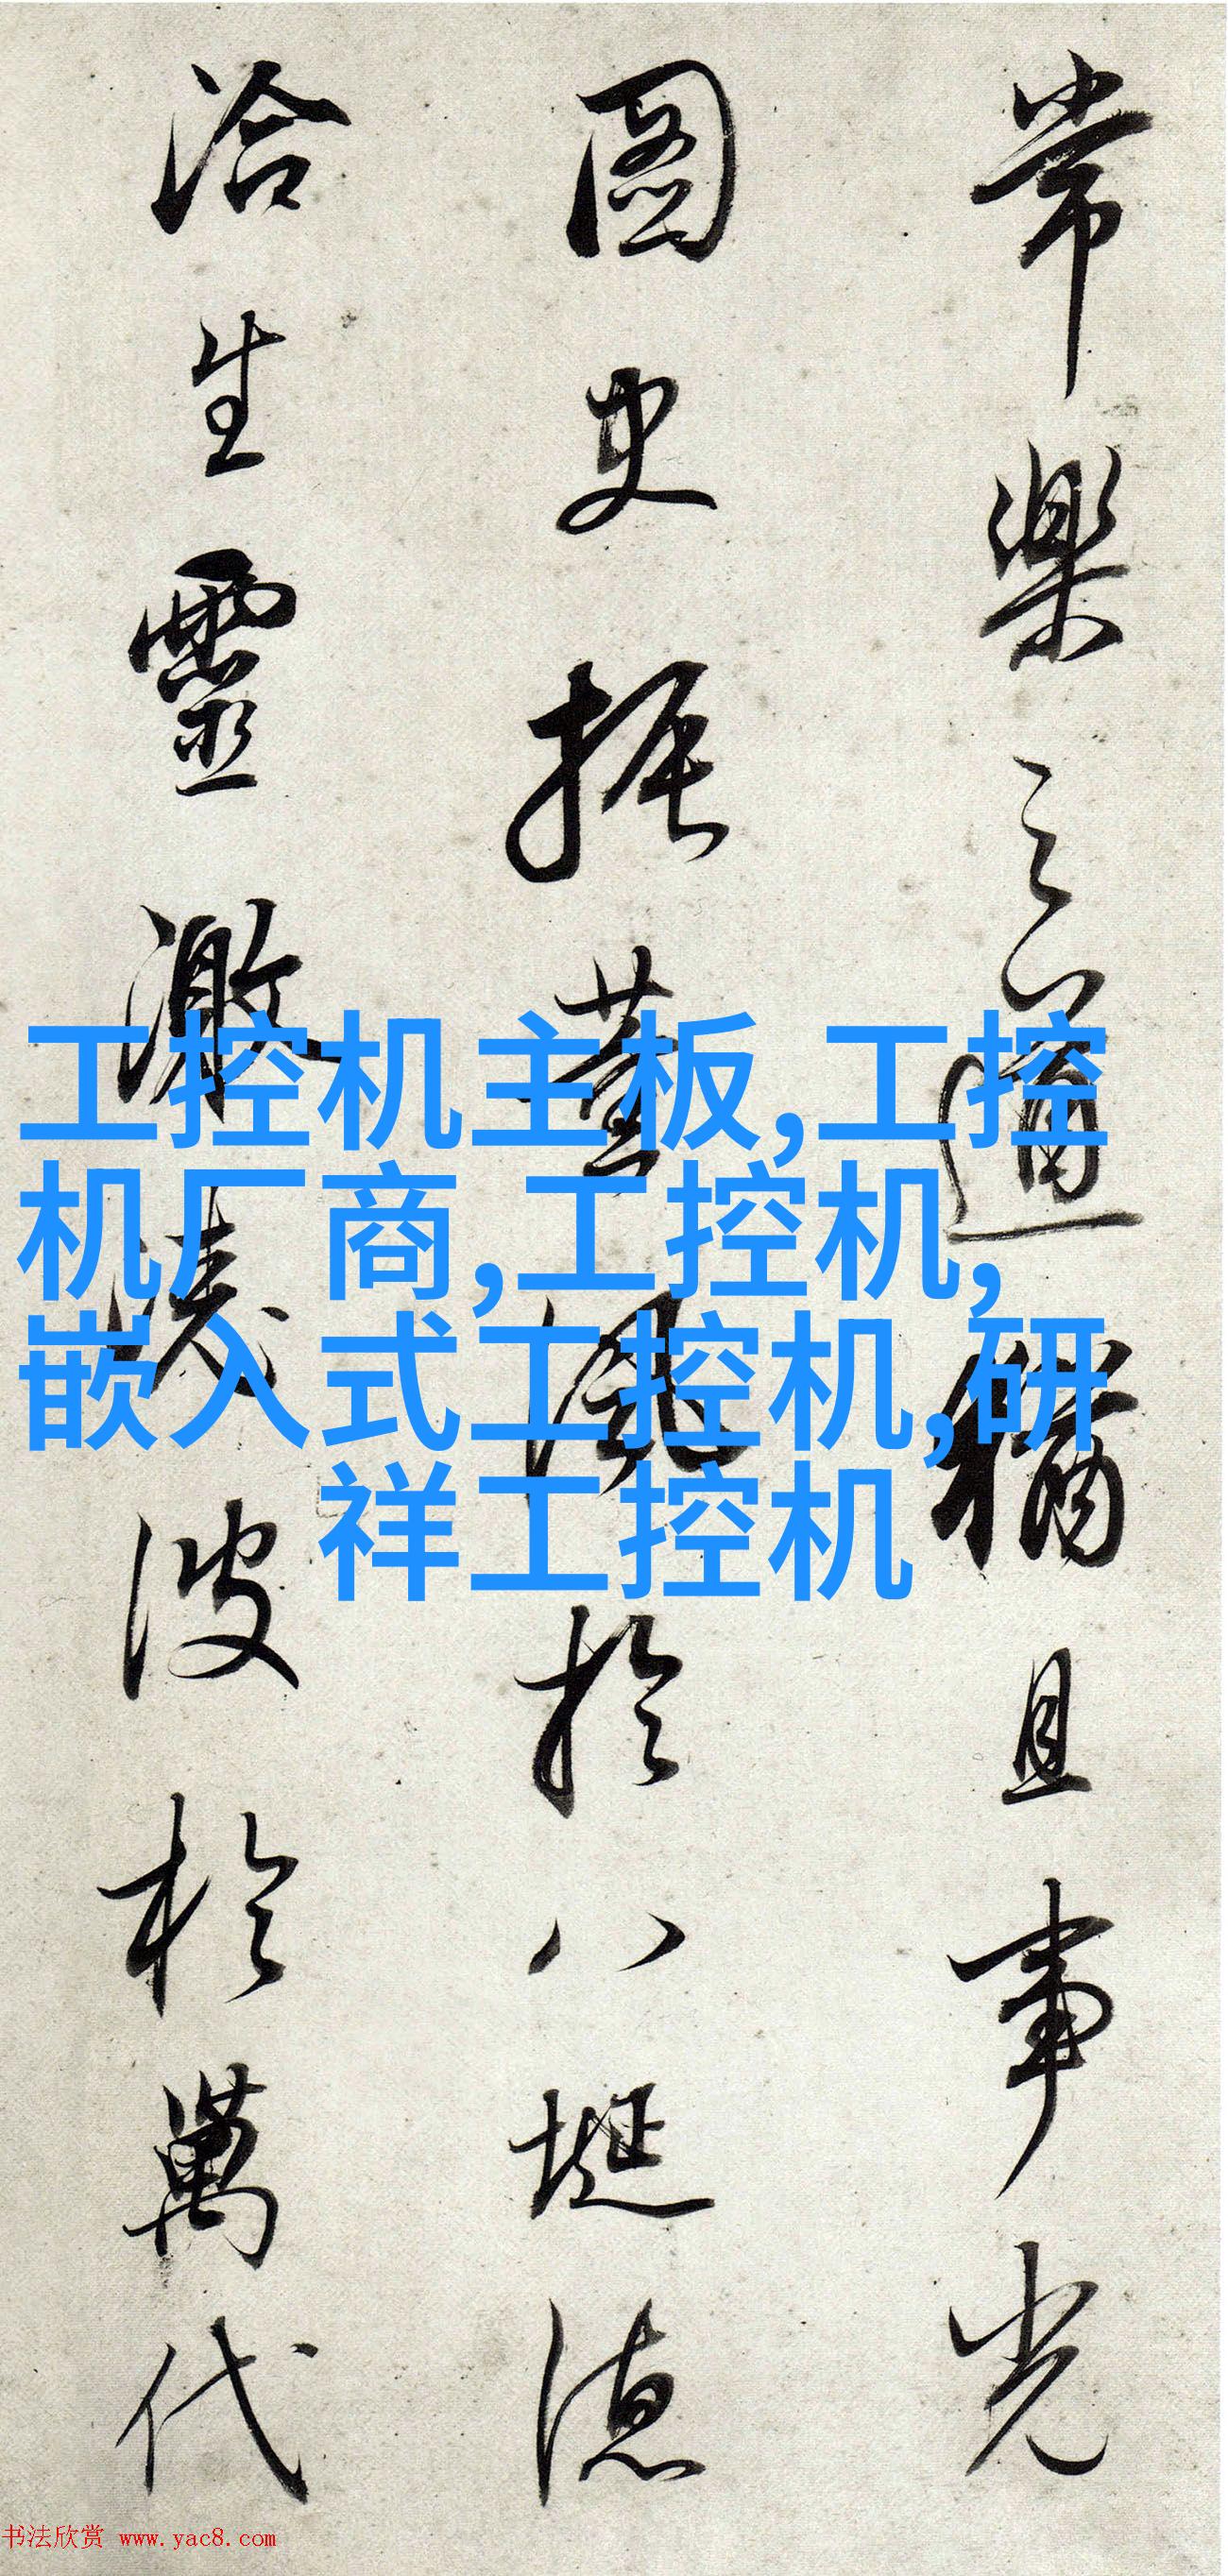 常樂之道猶且事光
圖史振薰風於八埏德
洽生靈激清波於萬代
工控机主板,工控
机厂商,工控机,
嵌入式工控机,研
祥工控机
书法欣赏 www.yac8.com